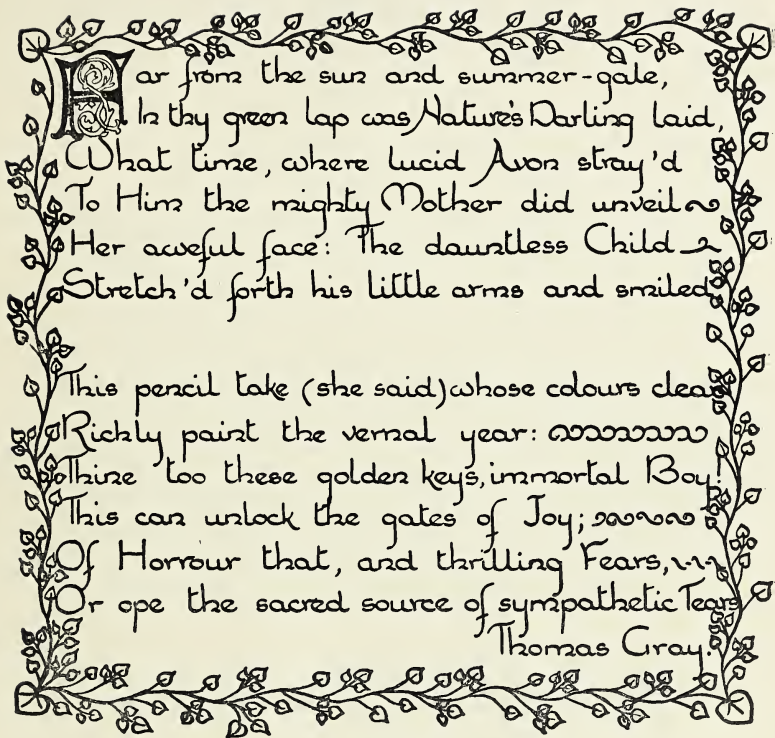 Far from the sun and summer-gale,
In thy green lap was Nature's Darling laid,
What time, where lucid Avon stray'd
To Him the mighty Mother did unveil
Her aweful face: The dauntless Child
Stretch'd forth his little arms and smiled.
This pencil take (she said) whose colours clear
Richly paint the vernal year:
Thine too these golden keys, immortal Boy!
This can unlock the gates of Joy;
Of Horrour that, and thrilling Fears,
Or ope the sacred source of sympathetic Tears
Thomas Gray.